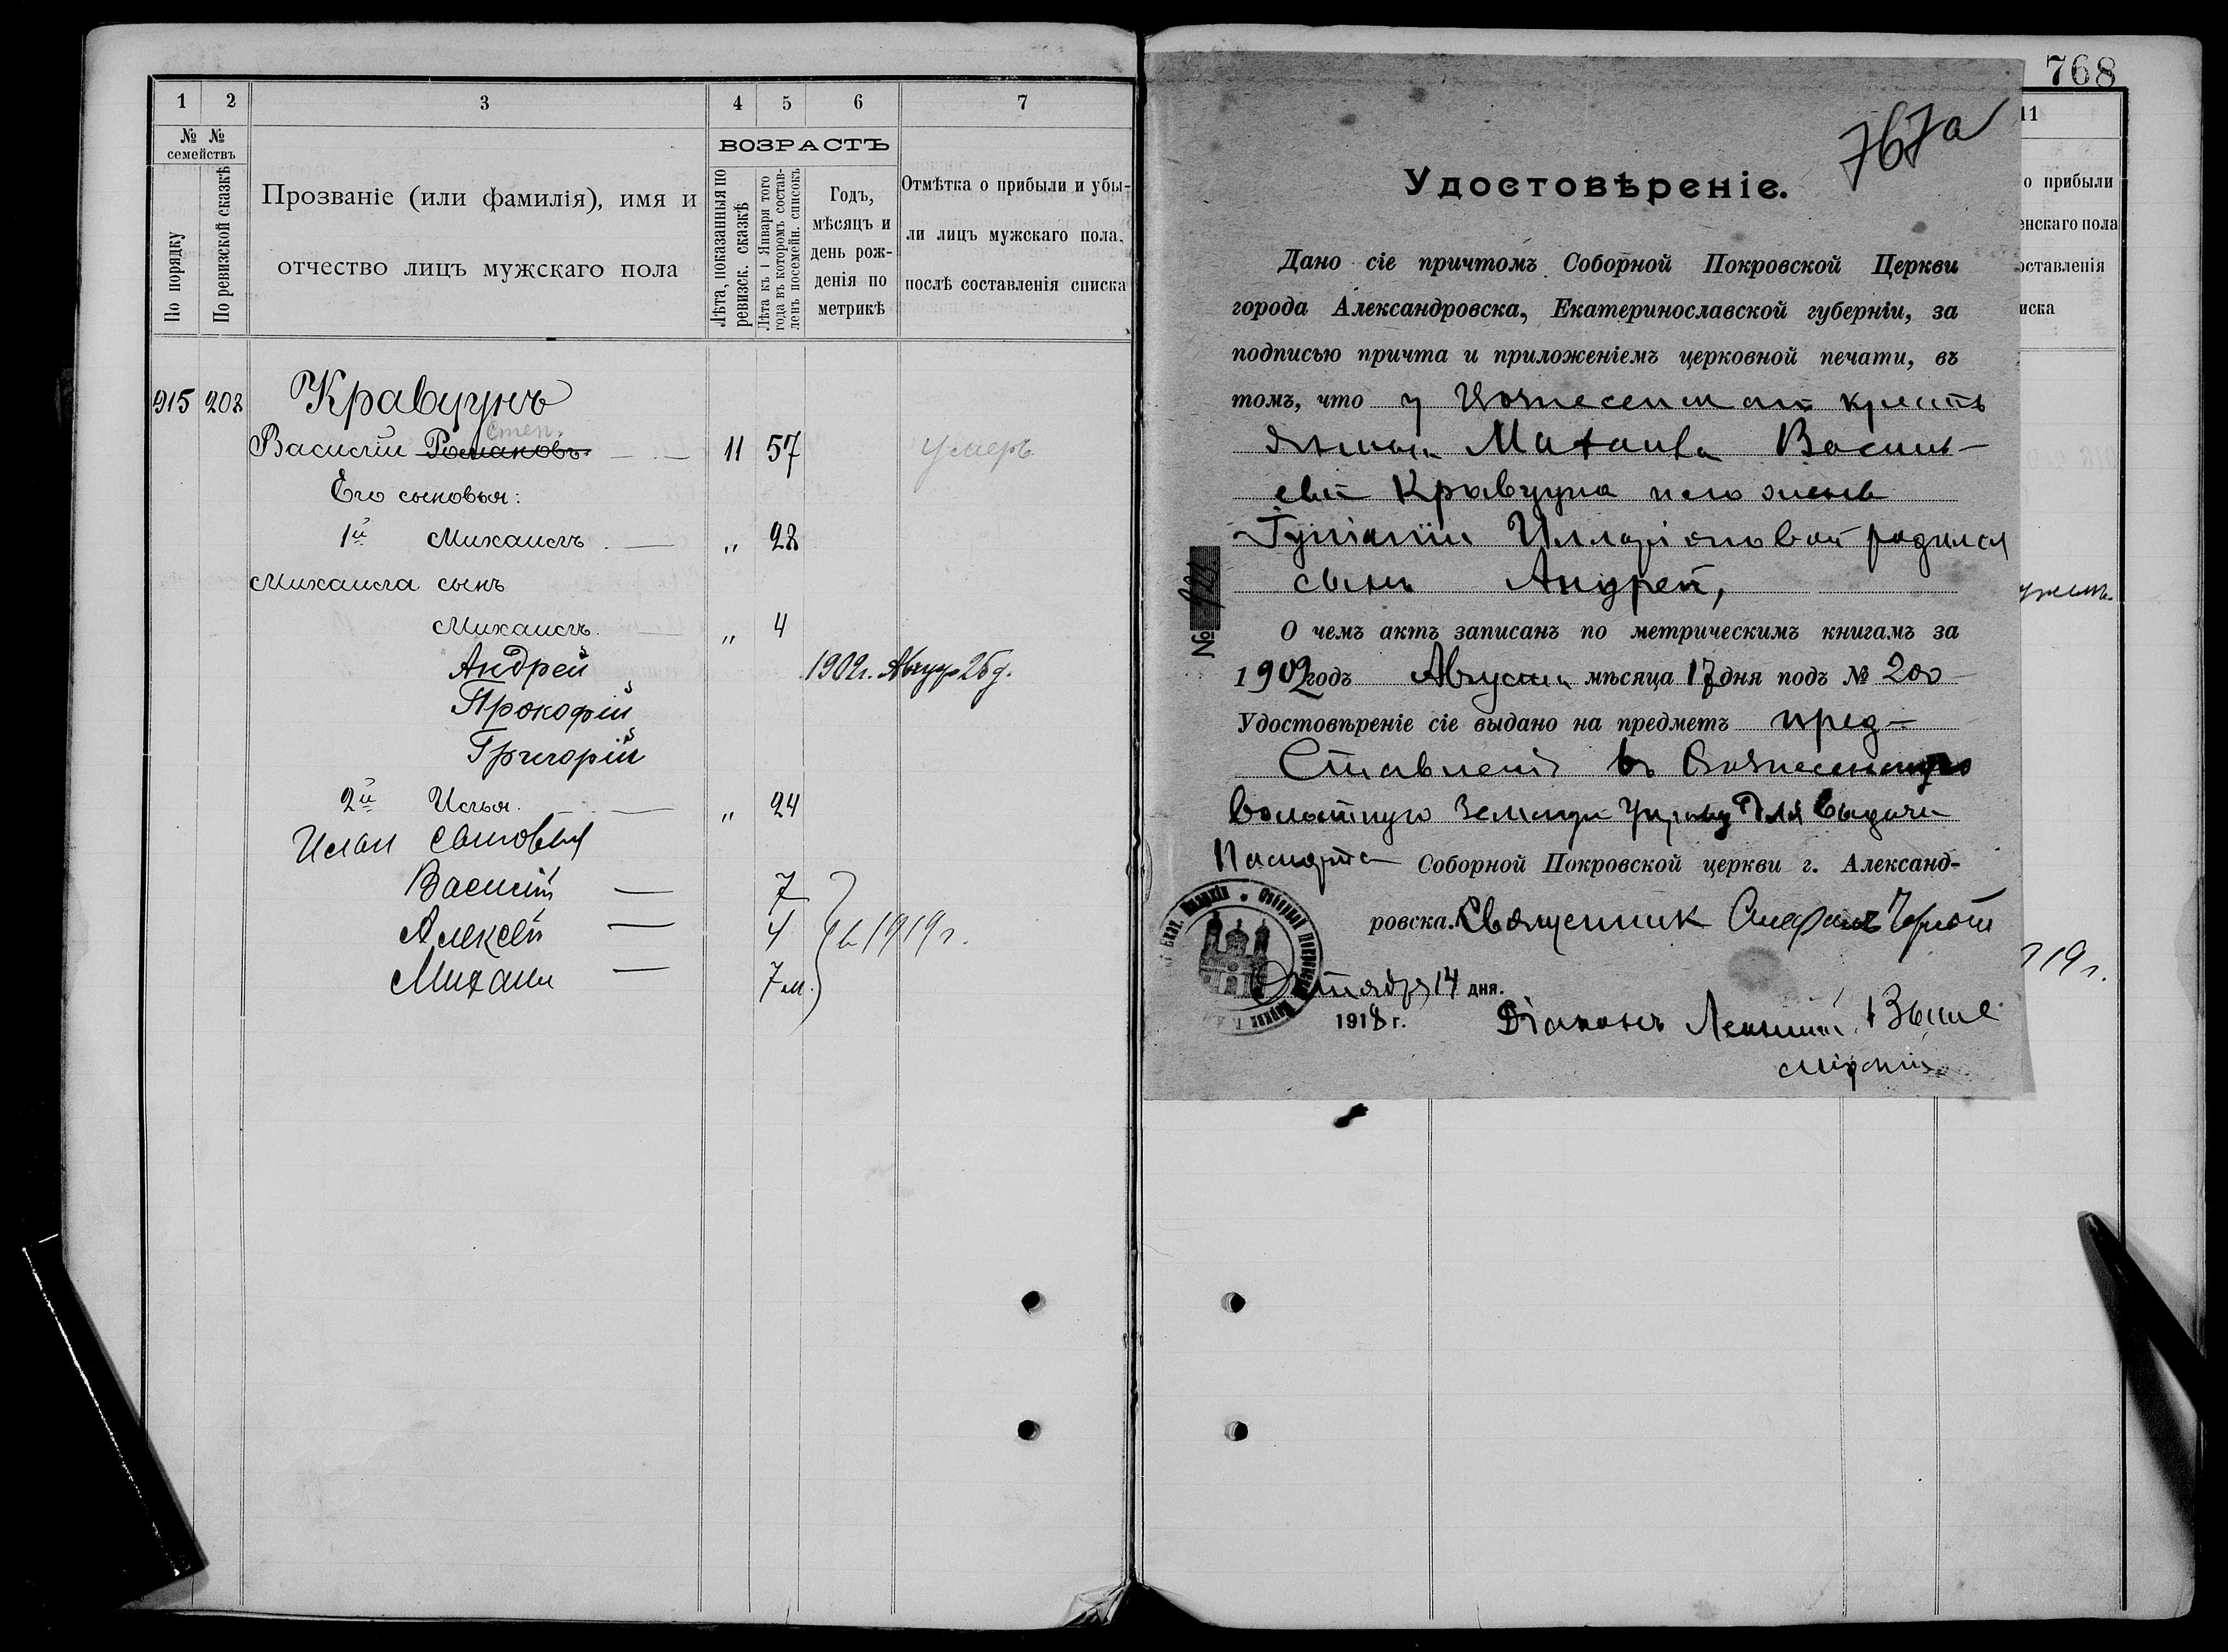 1 2 3 4 5 6 7
№ № семействъ
По порядку
По ревизской сказкѣ
Прозваніе (или фамилія), имя и
отчество лицъ мужскаго пола
ВОЗРАСТЪ
Лѣта, показанныя по
ревизск. сказкѣ
Лѣта къ 1 Января того
года въ которомъ состав-
ленъ посемейн. списокъ
Годъ,
мѣсяцъ и
день рож-
денія по
метрикѣ
Отмѣтка о прибыли и убы-
ли лицъ мужскаго пола,
послѣ составленія списка
915 202 Кравцунъ
Степ.
Василій Романовъ 11 57 умеръ
Его сыновья:
1й Михаилъ „ 28
Михаила сынъ
Михаилъ „ 4
Андрей 1902г. Авгус 26 д.
Прокофій
Григорій
2й Илья „ 24
Ильи сыновья
Василій — 7
Алексей — 4 въ 1919 г.
Михаил — 7 м.
768
767а
Удостовѣреніе.
Дано сіе причтомъ Соборной Покровской Церкви
города Александровска, Екатеринославской губерніи, за
подписью причта и приложеніемъ церковной печати, въ
томъ, что у Вознесенскаго кресть
янина Михаила Василь-
ева Кравцуна и его жены
Илларіоновой родился
сынъ Андрей,
О чемъ актъ записанъ по метрическимъ книгамъ за
1902 годъ Августа мѣсяца 17 дня подъ № 200
Удостовѣреніе сіе выдано на предметъ пред-
ставленія въ Вознесенскую
волостную Земскую Управу для выдачи
Паспорта Соборной Покровской церкви г. Александ-
ровска. Священник
Октября 14 дня.
1918 г.
Діаконъ
№
11
о прибыли
енскаго пола
оставленія
иска
19 г.